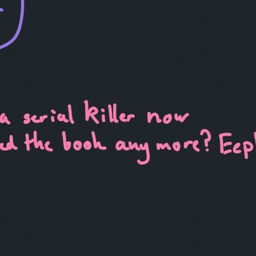 a serial killer now
ed the book any more? Eep